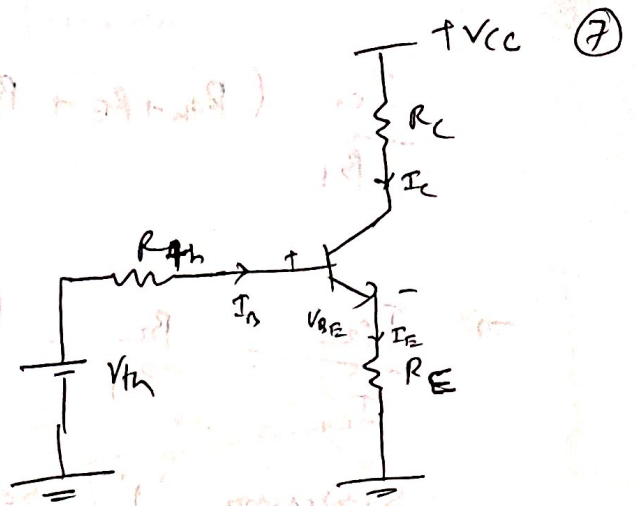 +VCC
7
RC
IC
Rth
+
IB
VBE
-
IE
Vth
RE